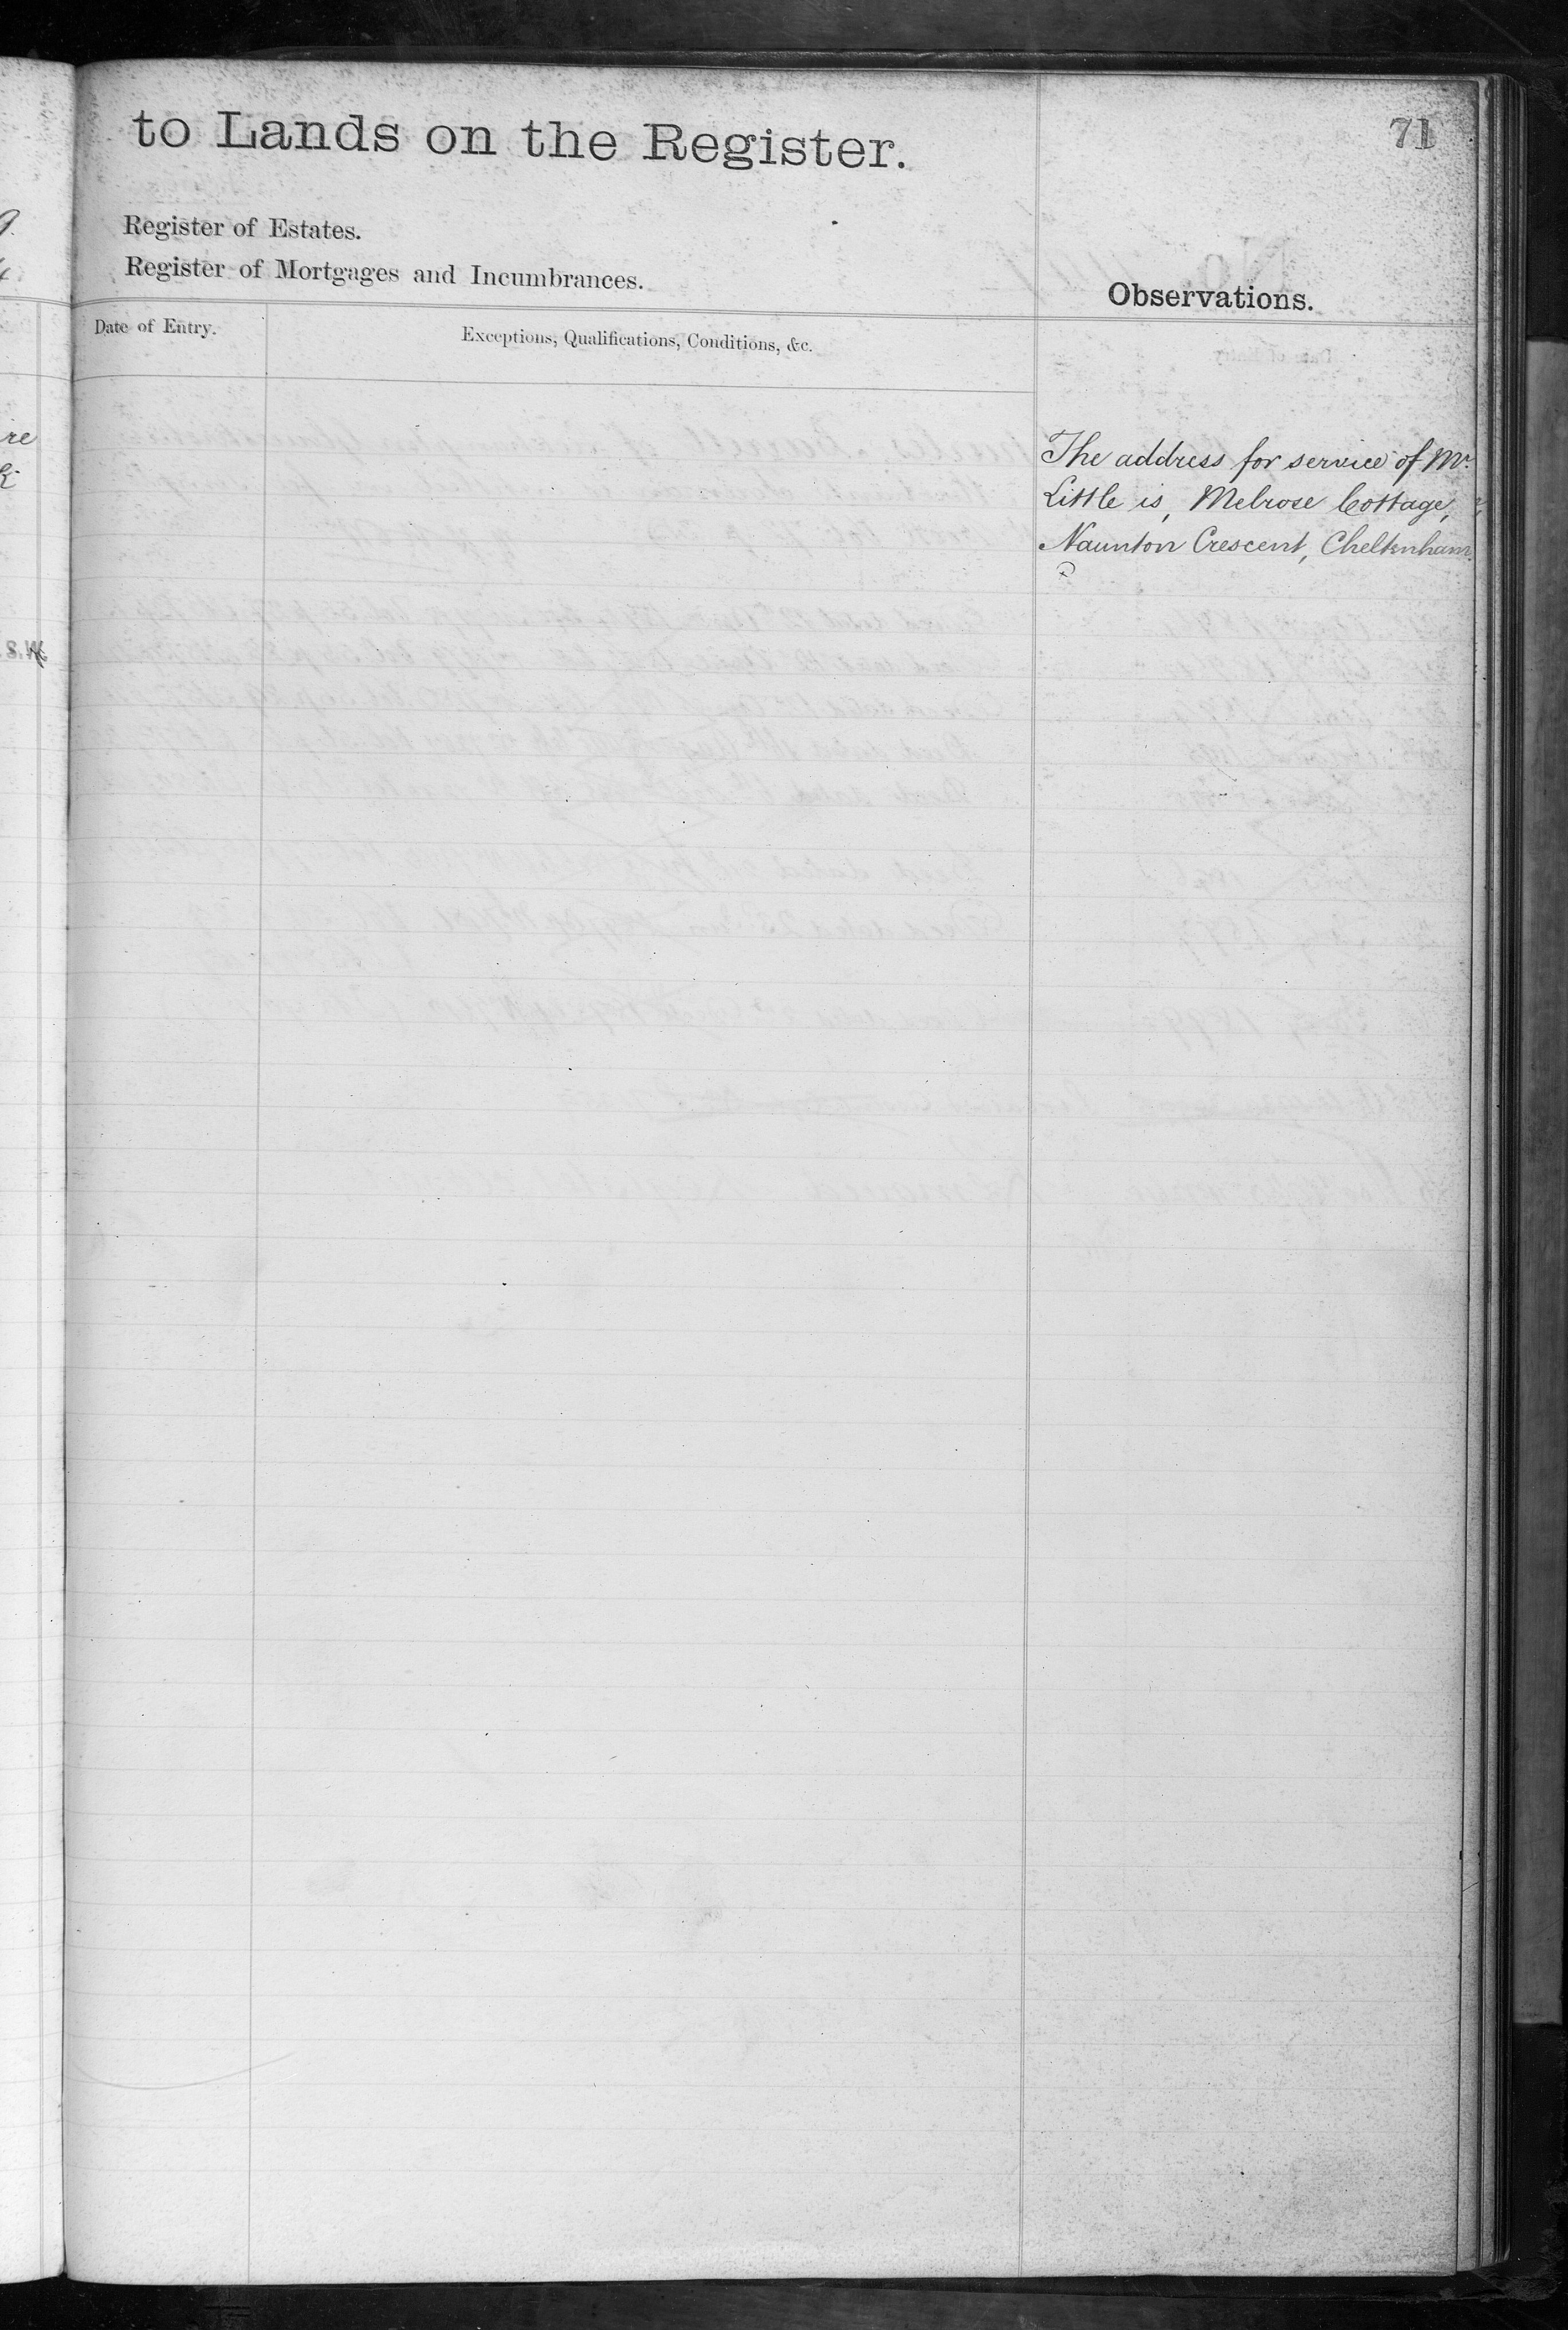 71
to Lands on the Register.
Register of Estates.
Register of Mortgages and Incumbrances.
Observations.
Date of Entry.
Exceptions, Qualifications, Conditions, &c.
The address for service of Mr.
Little is, Melrose Cottage,
Naunton Crescent, Cheltenham.
re
S.W.